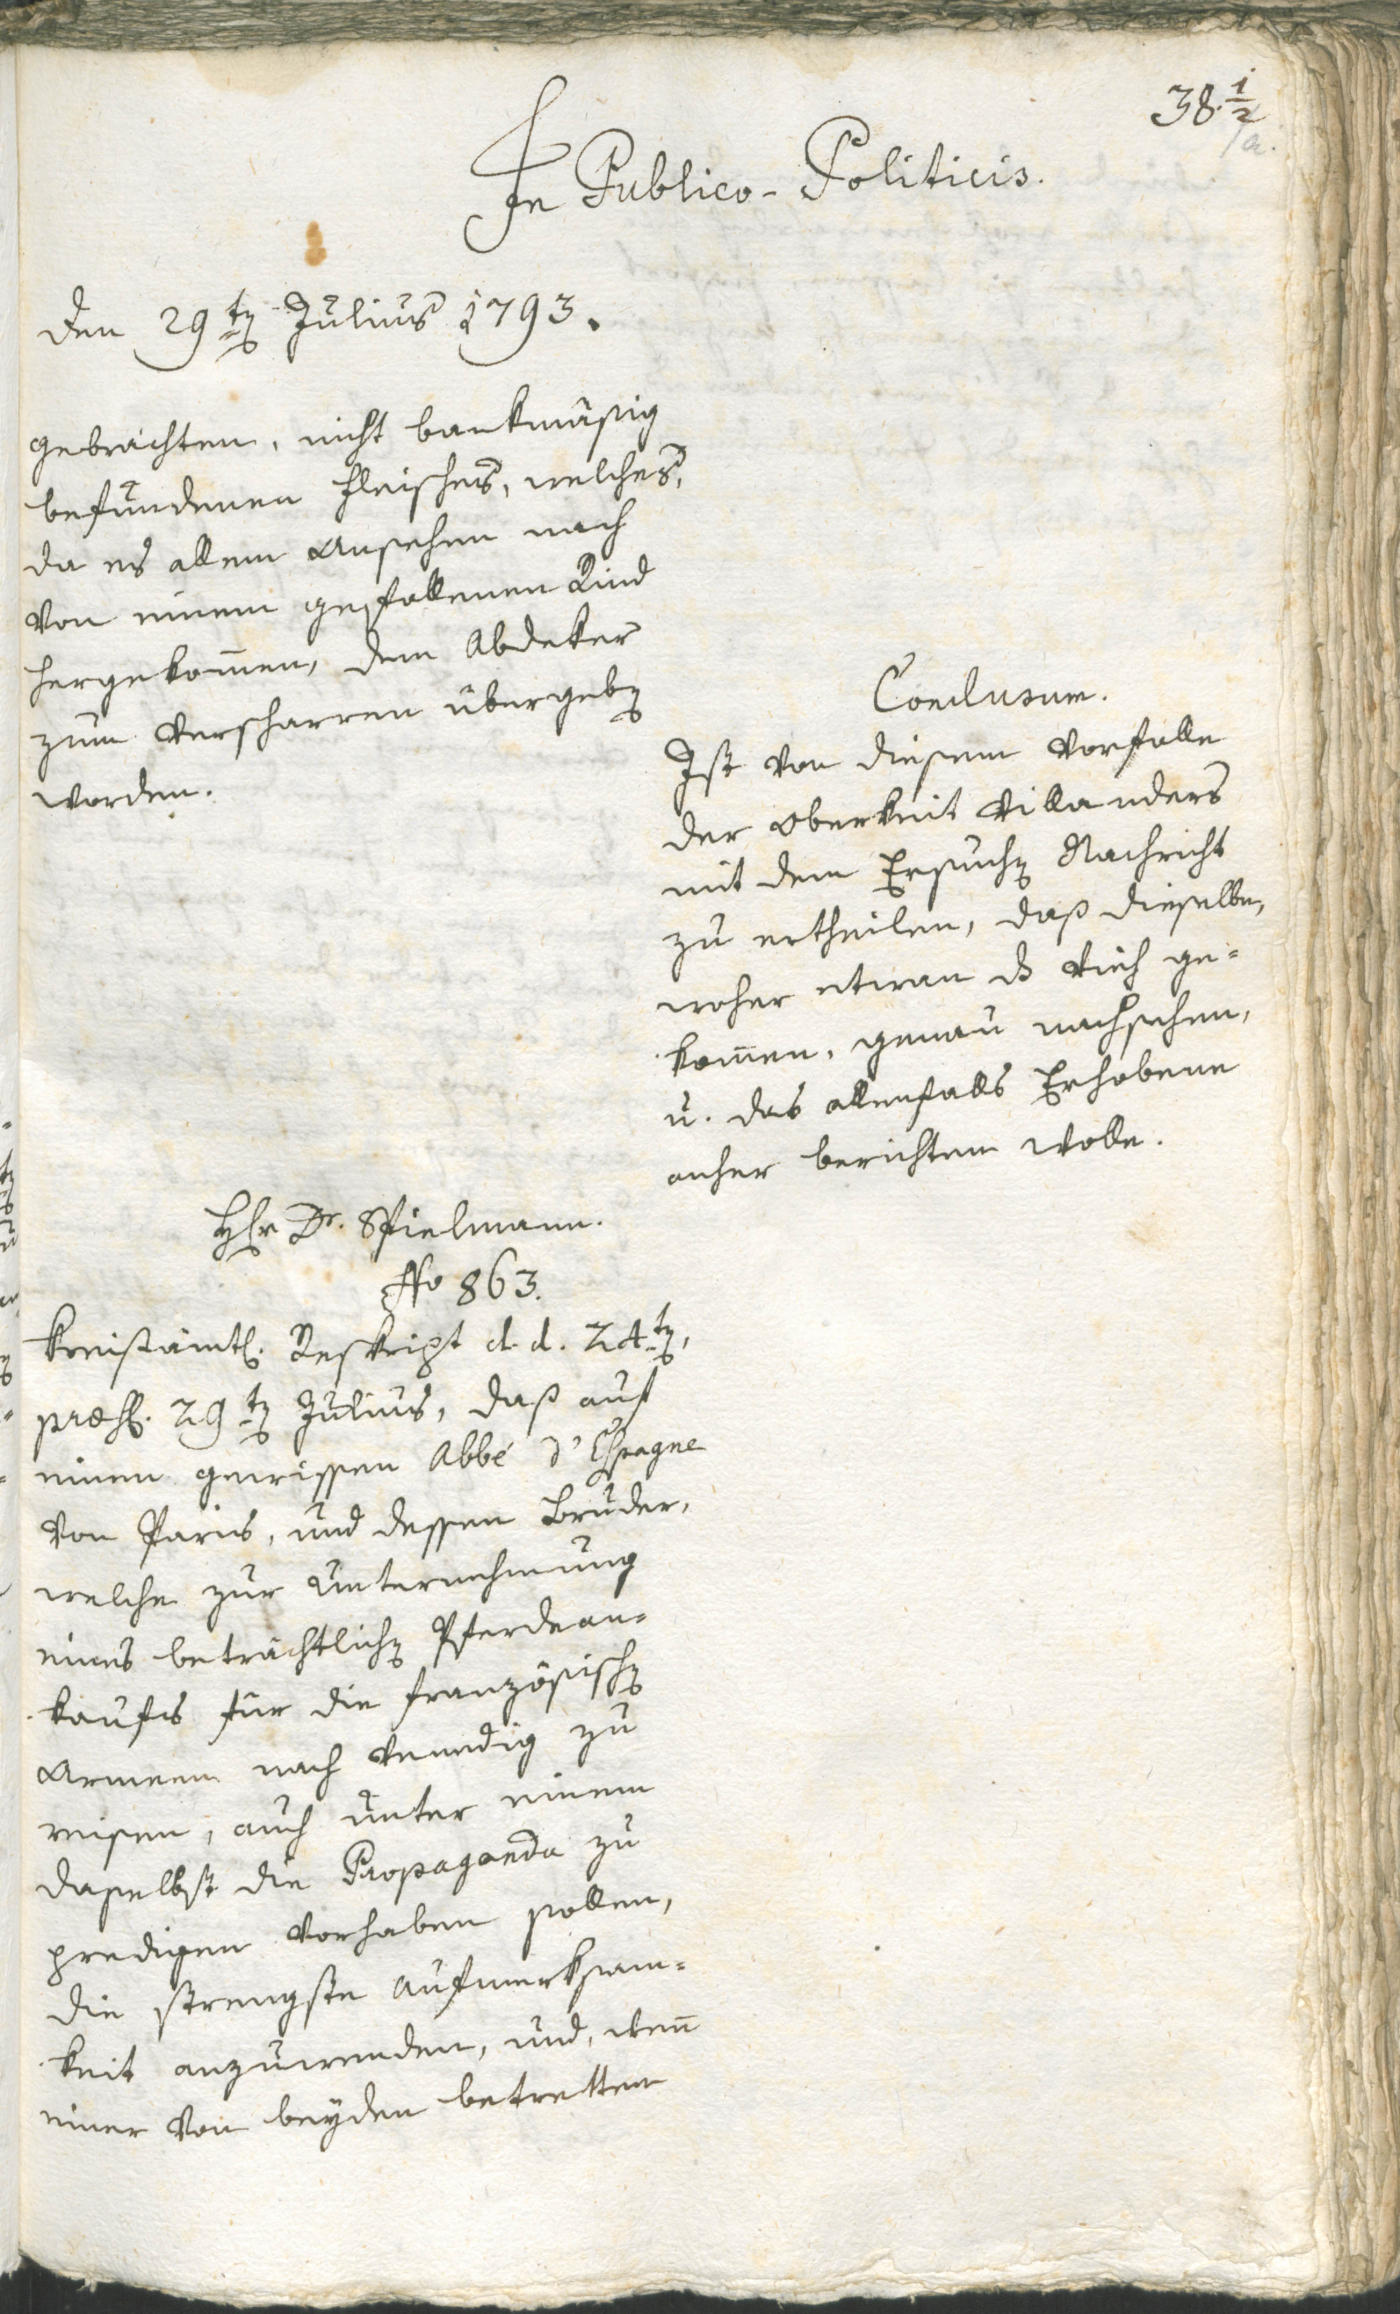 38. 1/2
a.
In Publico-Politicis.
den 29ten Julius 1793.
gebrachten, nicht bankmäßig
befundenen Fleisches, welches,
da es allem Ansehen nach
von einem gefallenen Rind
hergekom̅en, dem Abdeker
zum Verscharren übergeben
worden.
Conclusum.
Ist von diesem Vorfalle
der Oberkeit Villanders
mit dem Ersuchen Nachricht
zu ertheilen, daß dieselbe,
woher etwan das Vieh ge-
kom̅en, genau nachsehen,
u. das allenfalls Erhobene
anher berichten wolle.
Hhr Dr. Spielmann.
No 863.
Kreißämtl. Reskript d. d. 24ten,
præs. 29ten Julius, daß auf
einen gewissen Abbé d'Espagne
von Paris, und dessen Bruder,
welche zur Unternehmung
eines beträchtlichen Pferdean-
kaufes für die französischen
Armeen nach Venedig zu
reisen, auch unter einem
daselbst die Propaganda zu
predigen vorhaben sollen,
die strengste Aufmerksam-
keit anzuwenden, und, wen̅
einer von beyden betretten